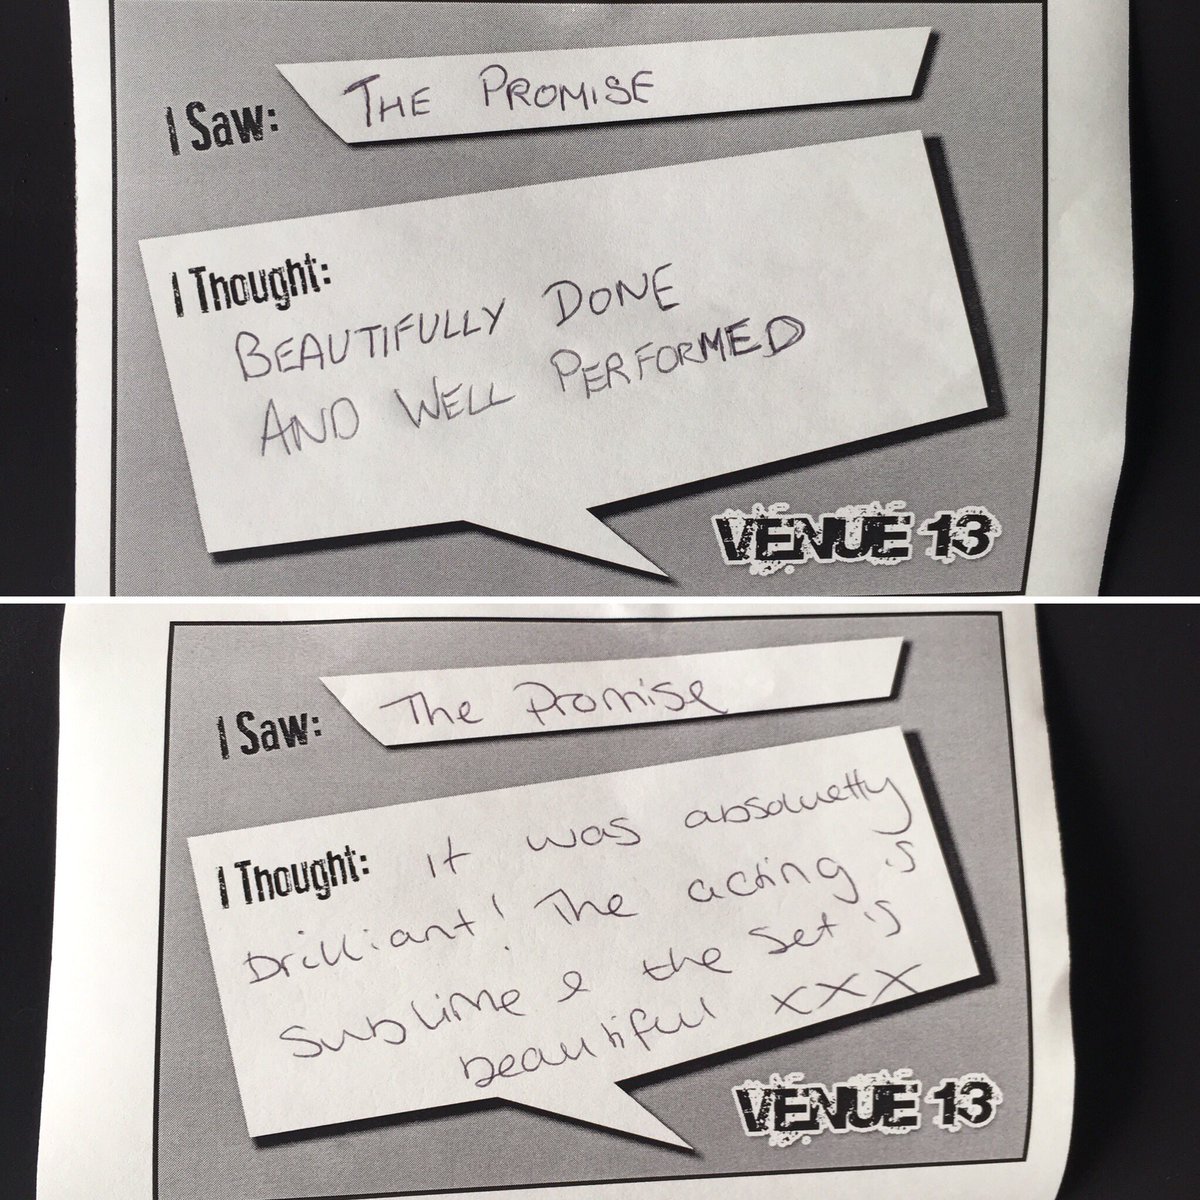 I Saw: THE PROMISE
I Thought:
BEAUTIFULLY DONE
AND WELL PERFORMED
VENUE 13
I Saw: The Promise
I Thought: it was absoluetly
brilliant! The acting is
sublime & the set is
beautiful xxx
VENUE 13